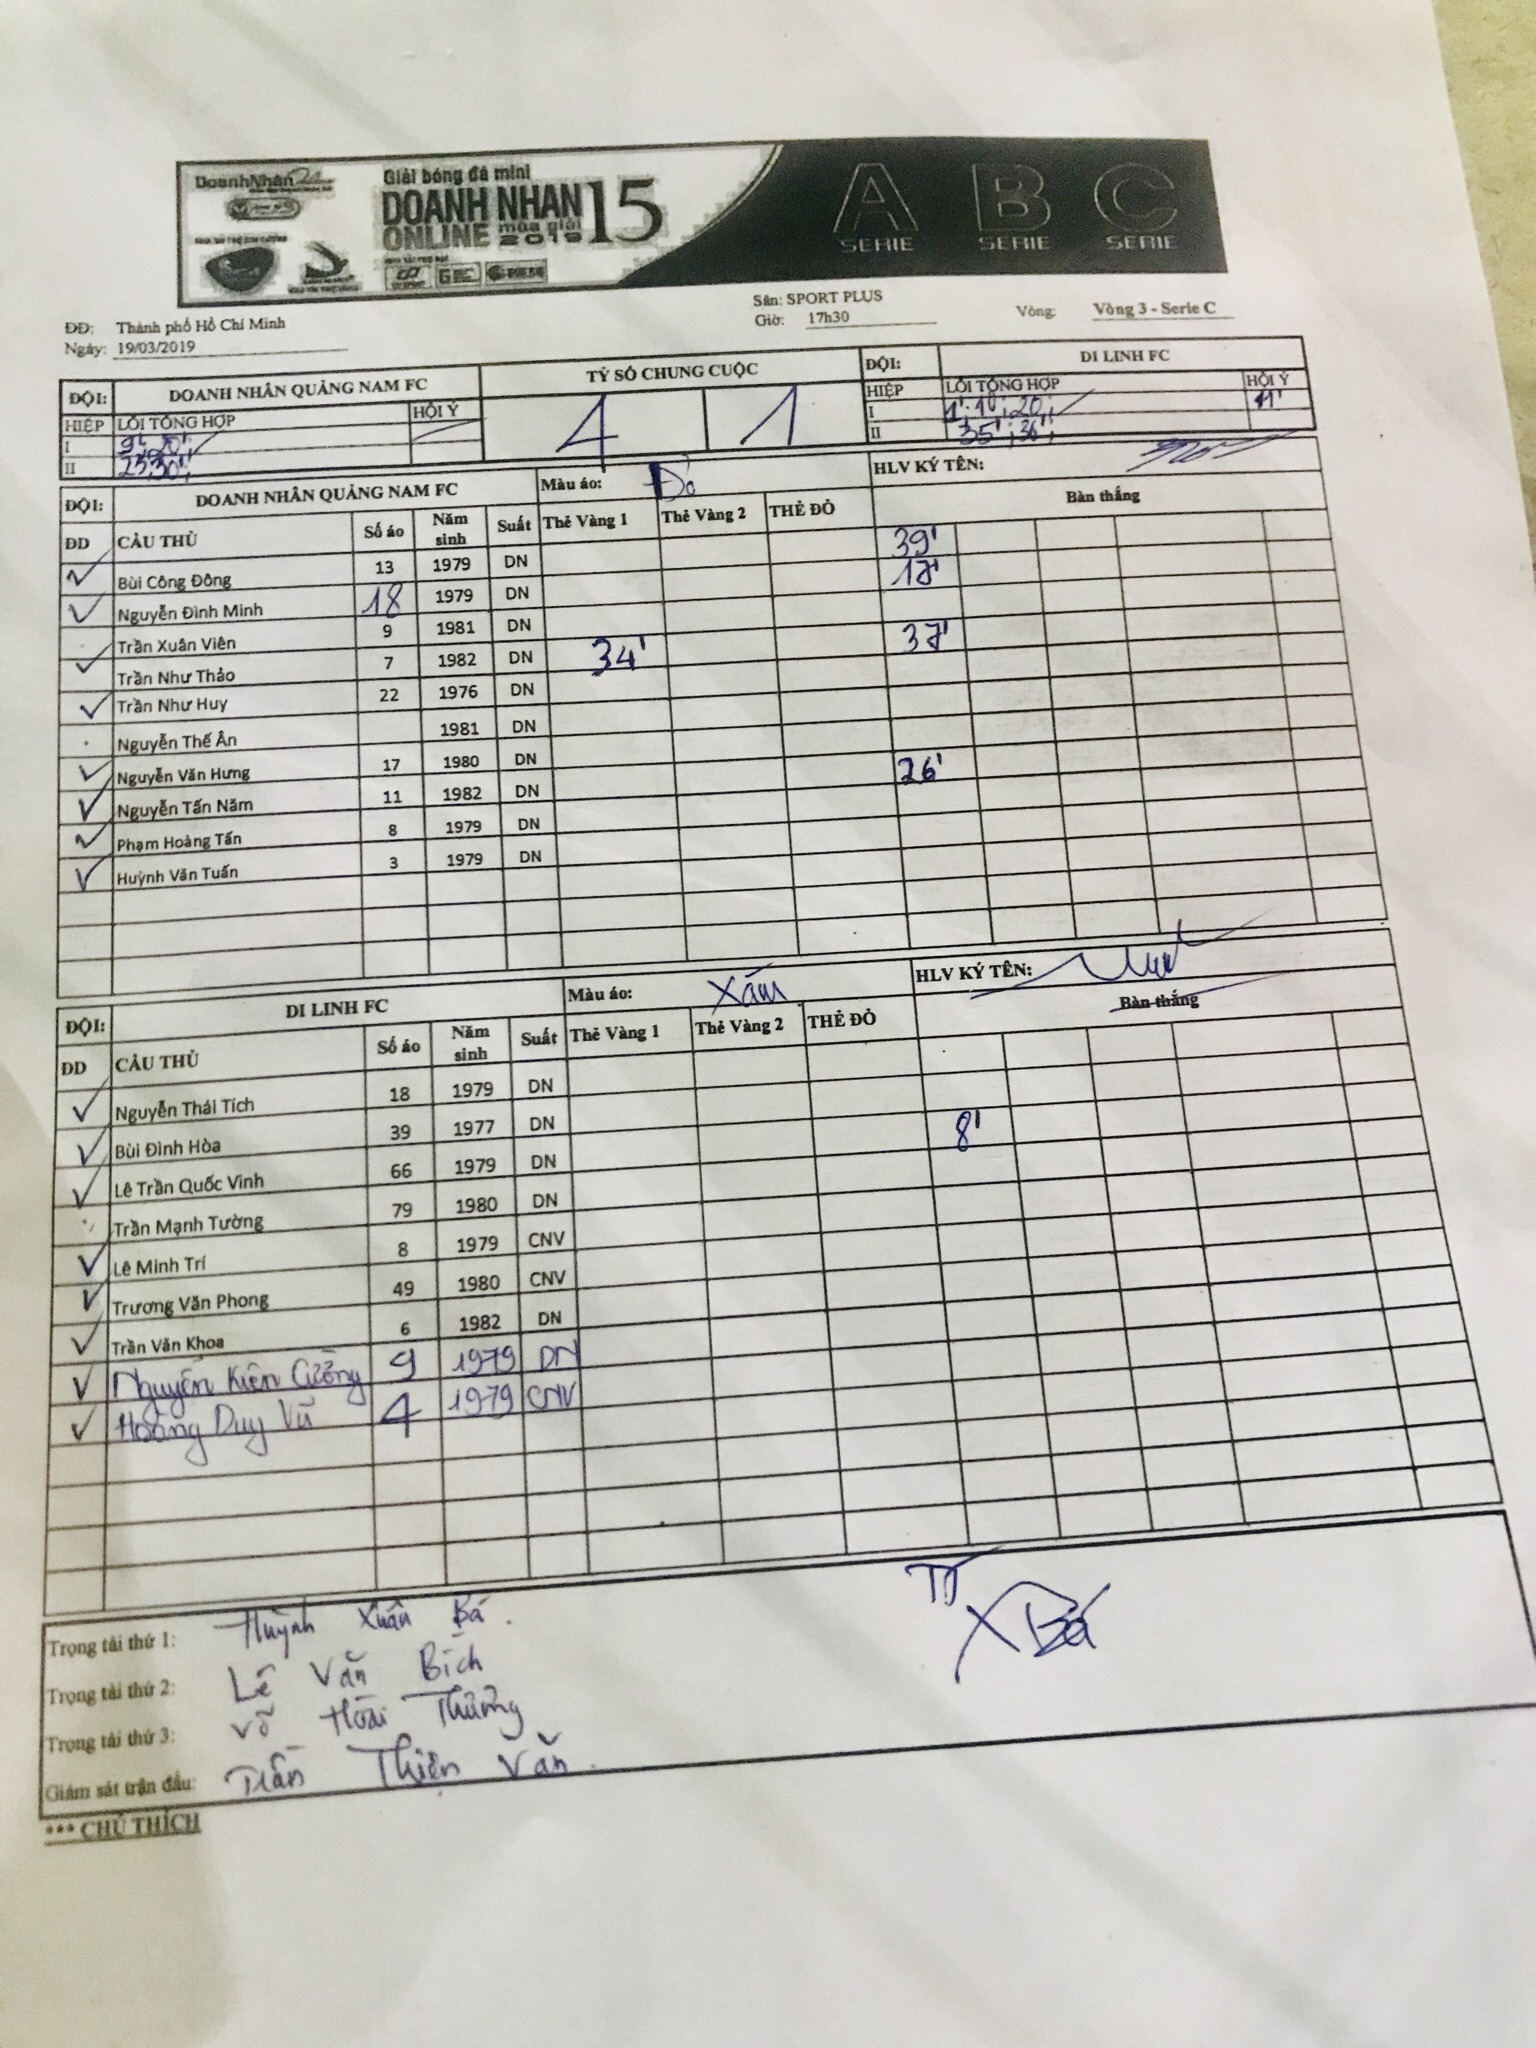 DoanhNhân
Giải bóng đá mini
DOANH NHAN
ONLINE mùa giải 2019 15
A SERIE B SERIE C SERIE
ĐĐ: Thành phố Hồ Chí Minh Sân: SPORT PLUS
Ngày: 19/03/2019 Giờ: 17h30 Vòng: Vòng 3 - Serie C
ĐỘI: DOANH NHÂN QUẢNG NAM FC TỶ SỐ CHUNG CUỘC ĐỘI: DI LINH FC
HIỆP LỖI TỔNG HỢP HỘI Ý 4 1 HIỆP LỖI TỔNG HỢP HỘI Ý
I 9' 20' I 1', 18', 20', 11'
II 23' 30' II 35', 36',
ĐỘI: DOANH NHÂN QUẢNG NAM FC Màu áo: Đỏ HLV KÝ TÊN:
ĐD CẦU THỦ Số áo Năm sinh Suất Thẻ Vàng 1 Thẻ Vàng 2 THẺ ĐỎ Bàn thắng
Bùi Công Đông 13 1979 DN 39'
Nguyễn Đình Minh 18 1979 DN 17'
Trần Xuân Viên 9 1981 DN
Trần Như Thảo 7 1982 DN 34' 37'
Trần Như Huy 22 1976 DN
Nguyễn Thế Ân 1981 DN
Nguyễn Văn Hưng 17 1980 DN
Nguyễn Tấn Năm 11 1982 DN 26'
Phạm Hoàng Tấn 8 1979 DN
Huỳnh Văn Tuấn 3 1979 DN
ĐỘI: DI LINH FC Màu áo: Xám HLV KÝ TÊN:
ĐD CẦU THỦ Số áo Năm sinh Suất Thẻ Vàng 1 Thẻ Vàng 2 THẺ ĐỎ Bàn thắng
Nguyễn Thái Tích 18 1979 DN
Bùi Đình Hòa 39 1977 DN
Lê Trần Quốc Vinh 66 1979 DN 8'
Trần Mạnh Tường 79 1980 DN
Lê Minh Trí 8 1979 CNV
Trương Văn Phong 49 1980 CNV
Trần Văn Khoa 6 1982 DN
Nguyễn Kiên Cường 9 1979 DN
Hoàng Duy Vũ 4 1979 CNV
Trọng tài thứ 1: Huỳnh Xuân Bá. TT
Trọng tài thứ 2: Lê Văn Bích XBá
Trọng tài thứ 3: Võ Hoài Thương
Giám sát trận đấu: Trần Thiện Văn.
*** CHÚ THÍCH